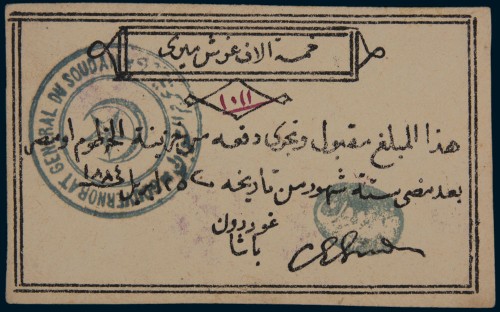 خمسة الاف غرش ميرى
١٠١١
هذا المبلغ مقبول ويجرى دفعه من خزينة الخرطوم او مصر
بعد مضى ستة شهور من تاريخه ٢٥ ابريل ١٨٨٤
غوردون
باشا
GENERAL DU SOUDAN